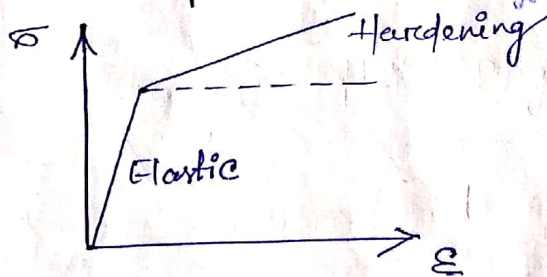 σ
Hardening
Elastic
ε